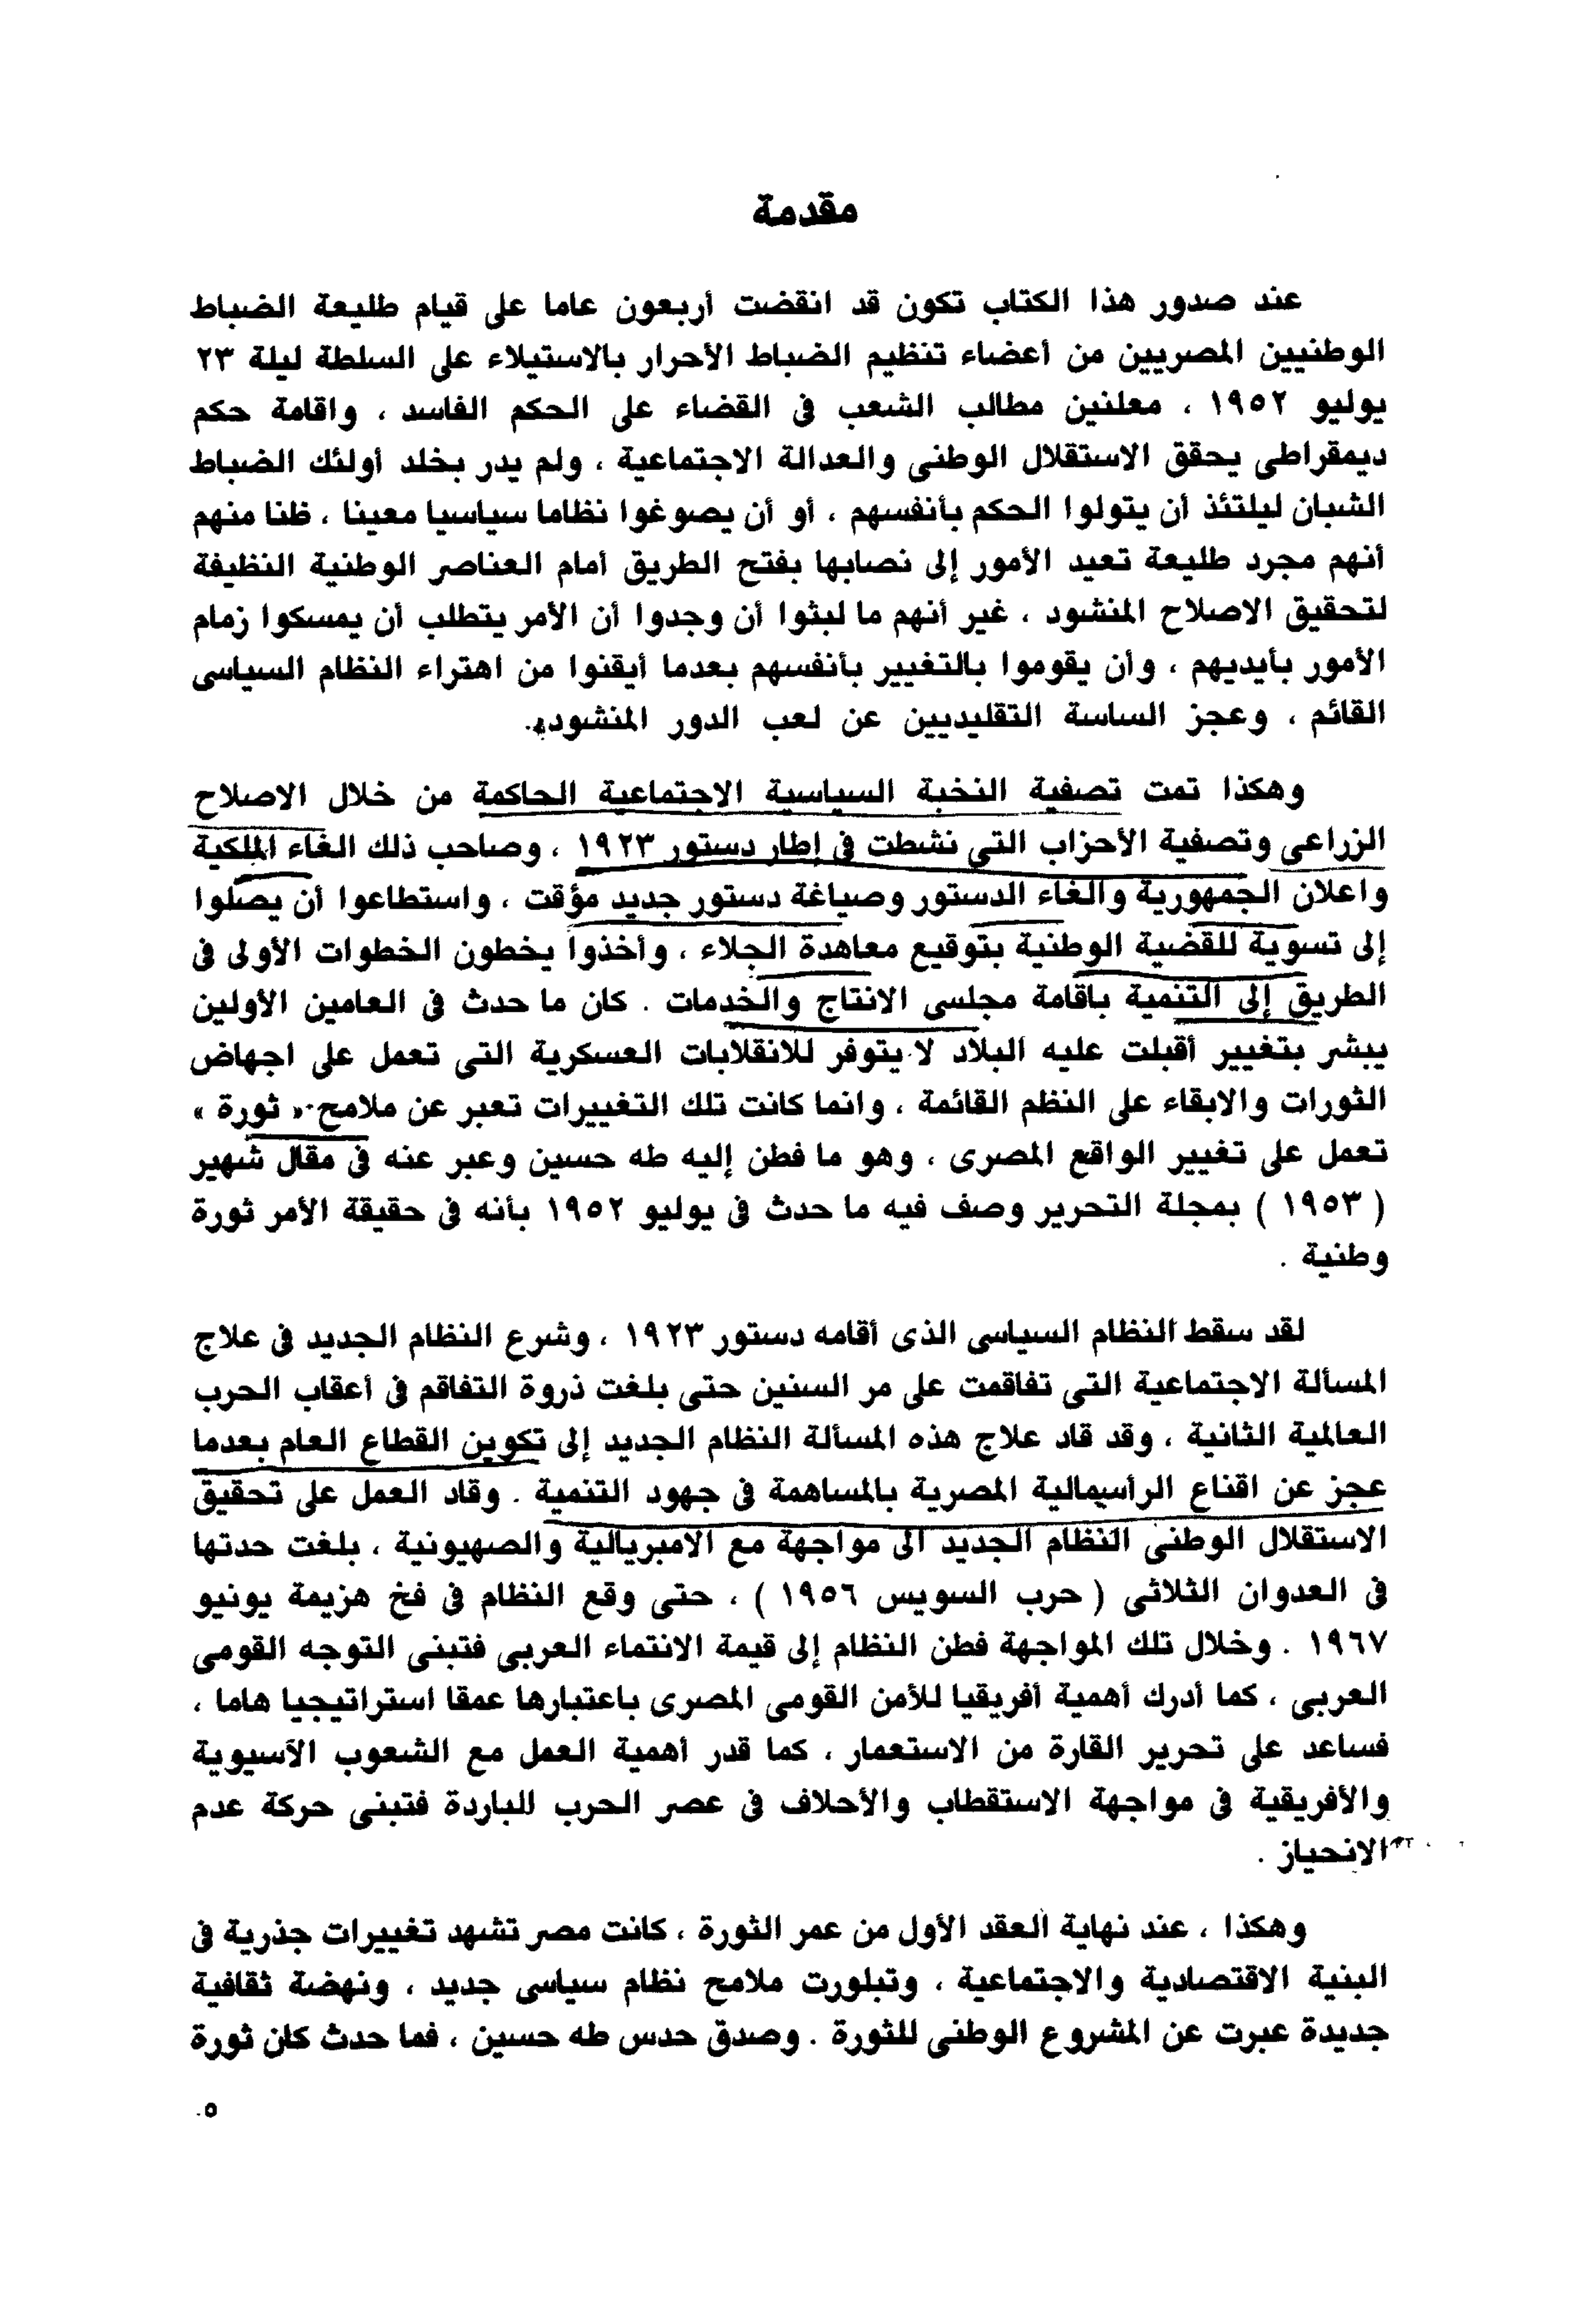 مقدمة
عند صدور هذا الكتاب تكون قد انقضت أربعون عاما على قيام طليعة الضباط
الوطنيين المصريين من أعضاء تنظيم الضباط الأحرار بالاستيلاء على السلطة ليلة ٢٣
يوليو ١٩٥٢ ، معلنين مطالب الشعب فى القضاء على الحكم الفاسد ، واقامة حكم
ديمقراطى يحقق الاستقلال الوطنى والعدالة الاجتماعية ، ولم يدر بخلد أولئك الضباط
الشبان ليلتئذ أن يتولوا الحكم بأنفسهم ، أو أن يصوغوا نظاما سياسيا معينا ، ظنا منهم
أنهم مجرد طليعة تعيد الأمور إلى نصابها بفتح الطريق أمام العناصر الوطنية النظيفة
لتحقيق الاصلاح المنشود ، غير أنهم ما لبثوا أن وجدوا أن الأمر يتطلب أن يمسكوا زمام
الأمور بأيديهم ، وأن يقوموا بالتغيير بأنفسهم بعدما أيقنوا من اهتراء النظام السياسى
القائم ، وعجز الساسة التقليديين عن لعب الدور المنشود.
وهكذا تمت تصفية النخبة السياسية الاجتماعية الحاكمة من خلال الاصلاح
الزراعى وتصفية الأحزاب التي نشطت فى إطار دستور ١٩٢٣ ، وصاحب ذلك الغاء الملكية
واعلان الجمهورية والغاء الدستور وصياغة دستور جديد مؤقت ، واستطاعوا أن يصلوا
إلى تسوية للقضية الوطنية بتوقيع معاهدة الجلاء ، وأخذوا يخطون الخطوات الأولى فى
الطريق إلى التنمية باقامة مجلسى الانتاج والخدمات . كان ما حدث فى العامين الأولين
يبشر بتغيير أقبلت عليه البلاد لا يتوفر للانقلابات العسكرية التى تعمل على اجهاض
الثورات والابقاء على النظم القائمة ، وانما كانت تلك التغييرات تعبر عن ملامح « ثورة »
تعمل على تغيير الواقع المصرى ، وهو ما فطن إليه طه حسين وعبر عنه فى مقال شهير
( ١٩٥٣ ) بمجلة التحرير وصف فيه ما حدث فى يوليو ١٩٥٢ بأنه فى حقيقة الأمر ثورة
وطنية .
لقد سقط النظام السياسى الذى أقامه دستور ١٩٢٣ ، وشرع النظام الجديد فى علاج
المسألة الاجتماعية التى تفاقمت على مر السنين حتى بلغت ذروة التفاقم فى أعقاب الحرب
العالمية الثانية ، وقد قاد علاج هذه المسألة النظام الجديد إلى تكوين القطاع العام بعدما
عجز عن اقناع الرأسمالية المصرية بالمساهمة فى جهود التنمية . وقاد العمل على تحقيق
الاستقلال الوطنى النظام الجديد الى مواجهة مع الامبريالية والصهيونية ، بلغت حدتها
فى العدوان الثلاثى ( حرب السويس ١٩٥٦ ) ، حتى وقع النظام فى فخ هزيمة يونيو
١٩٦٧ . وخلال تلك المواجهة فطن النظام إلى قيمة الانتماء العربى فتبنى التوجه القومى
العربى ، كما أدرك أهمية أفريقيا للأمن القومى المصرى باعتبارها عمقا استراتيجيا هاما ،
فساعد على تحرير القارة من الاستعمار ، كما قدر أهمية العمل مع الشعوب الآسيوية
والأفريقية فى مواجهة الاستقطاب والأحلاف فى عصر الحرب الباردة فتبنى حركة عدم
الانحياز .
وهكذا ، عند نهاية العقد الأول من عمر الثورة ، كانت مصر تشهد تغييرات جذرية فى
البنية الاقتصادية والاجتماعية ، وتبلورت ملامح نظام سياسى جديد ، ونهضة ثقافية
جديدة عبرت عن المشروع الوطنى للثورة . وصدق حدس طه حسين ، فما حدث كان ثورة
٥